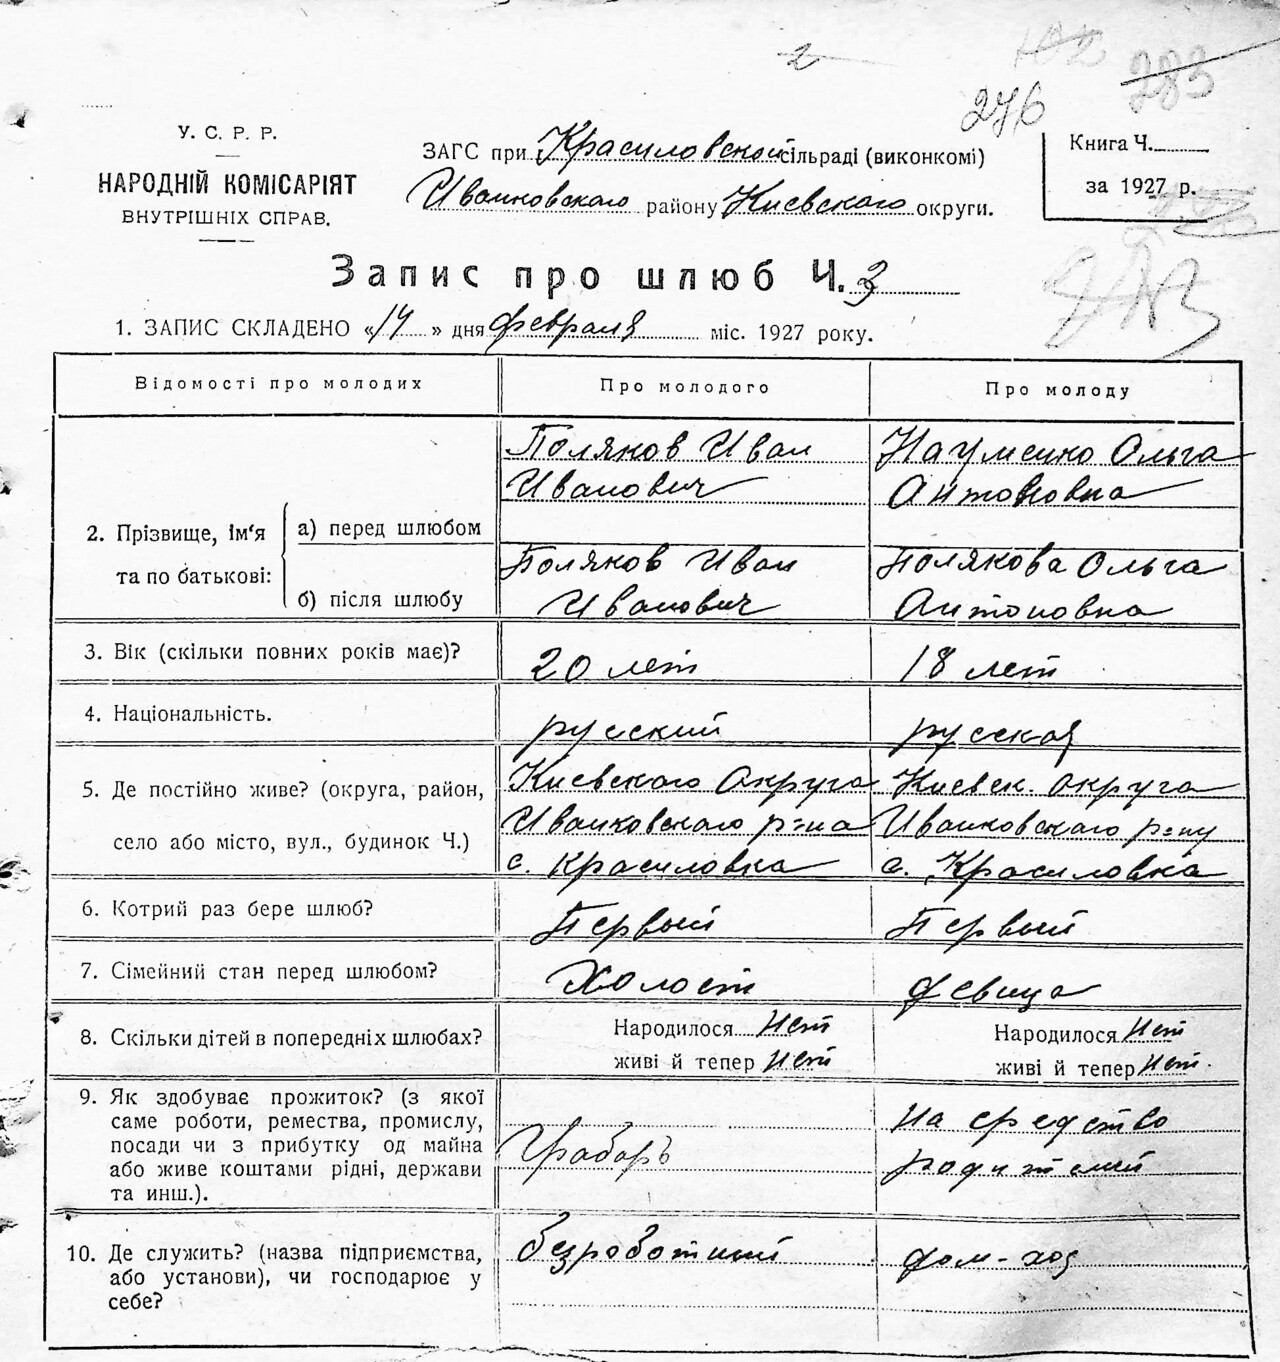 2
283
276
У. С. Р. Р.
НАРОДНІЙ КОМІСАРІЯТ
ВНУТРІШНІХ СПРАВ.
ЗАГС при Красиловской сільраді (виконкомі)
Иванковского району Киевского округи.
Книга Ч.
за 1927 р.
Запис про шлюб Ч. 3
1. ЗАПИС СКЛАДЕНО «14» дня февраля міс. 1927 року.
Відомості про молодих Про молодого Про молоду
2. Прізвище, ім‘я та по батькові:
а) перед шлюбом
Поляков Иван
Иванович
Науменко Ольга
Антоновна
б) після шлюбу
Поляков Иван
Иванович
Полякова Ольга
Антоновна
3. Вік (скільки повних років має)? 20 лет 18 лет
4. Національність. русский русская
5. Де постійно живе? (округа, район,
село або місто, вул., будинок Ч.)
Киевского Округа
Иванковского р=на
с. Красиловка
Киевск. округа
Иванковского р=ну
с. Красиловка
6. Котрий раз бере шлюб? Первый Первый
7. Сімейний стан перед шлюбом? Холост девица
8. Скільки дітей в попередніх шлюбах?
Народилося нет
живі й тепер нет
Народилося нет
живі й тепер нет.
9. Як здобуває прожиток? (з якої
саме роботи, ремества, промислу,
посади чи з прибутку од майна
або живе коштами рідні, держави
та инш.).
Грабарь
на средство
родителей
10. Де служить? (назва підприємства,
або установи), чи господарює у
себе?
безработный
дом-хоз